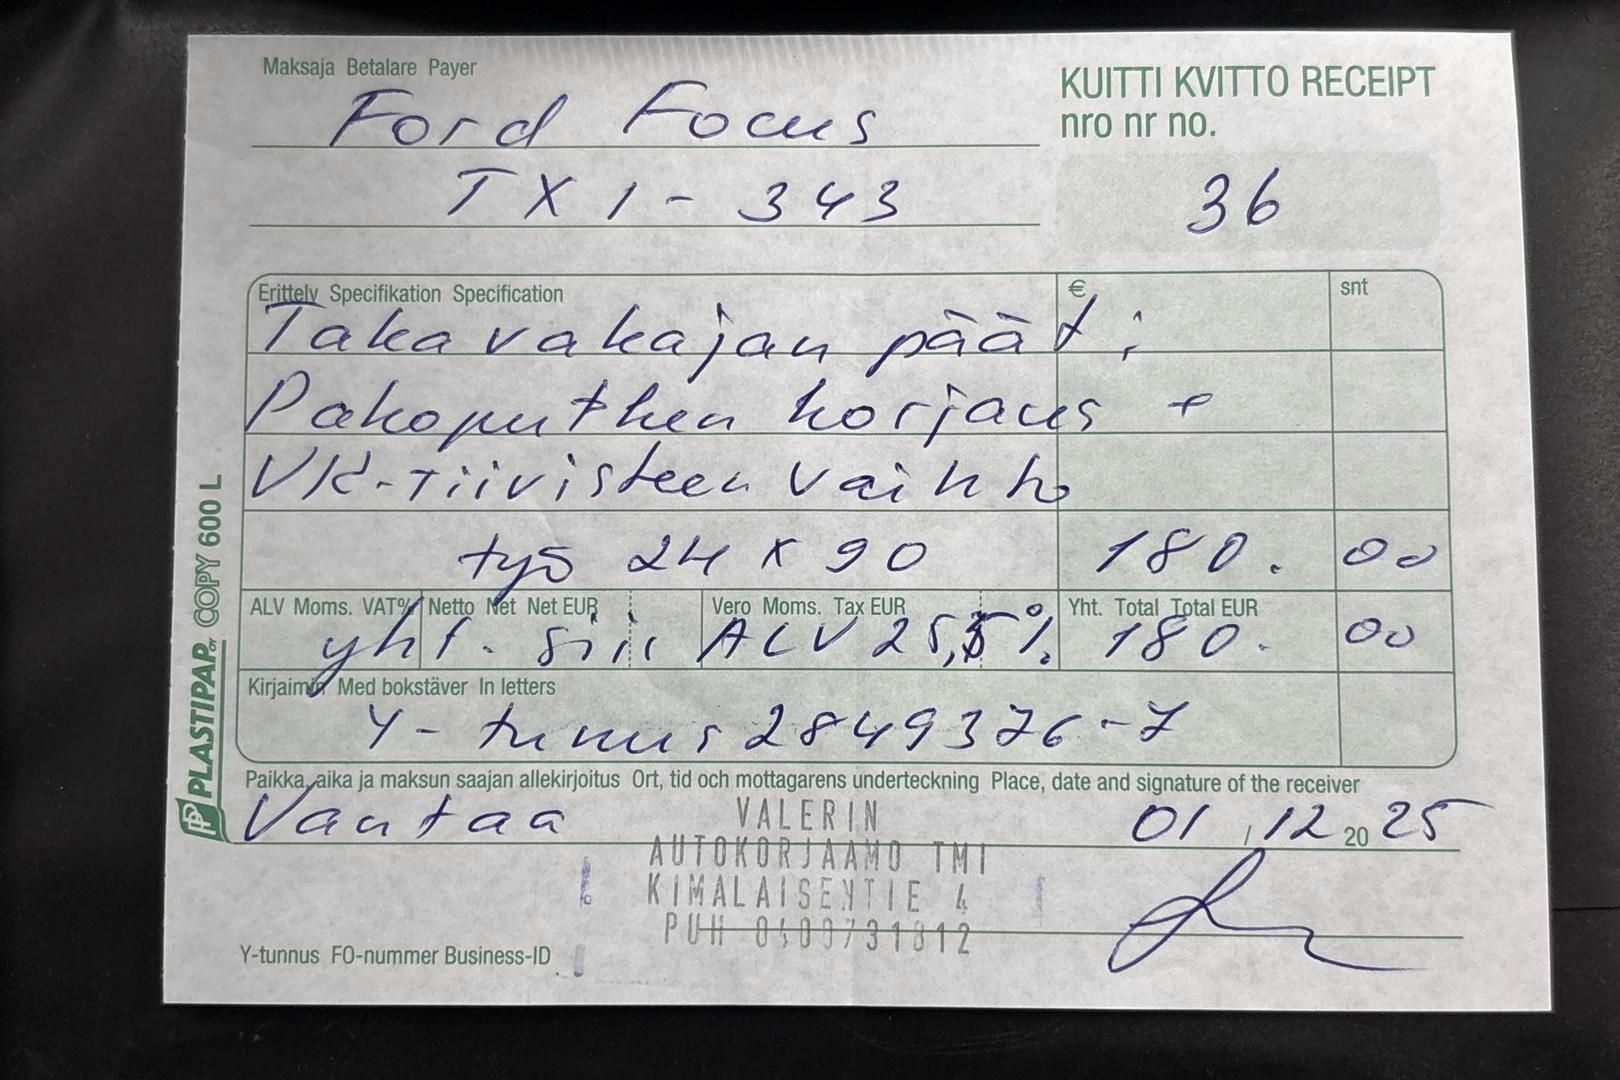 Maksaja Betalare Payer
Ford Focus
TXI-343
KUITTI KVITTO RECEIPT
nro nr no.
36
Erittely Specifikation Specification
€
snt
Takavakajan päät;
Pakoputken korjaus +
VK-tiivisteen vaihto
työ 2H x 90 180. 00
ALV Moms. VAT% Netto Net Net EUR Vero Moms. Tax EUR Yht. Total Total EUR
yht. sis ALV 25,5%. 180. 00
Kirjaimin Med bokstäver In letters
Y-tunnus 2849376-7
Paikka, aika ja maksun saajan allekirjoitus Ort, tid och mottagarens underteckning Place, date and signature of the receiver
Vantaa
01/12 2025
VALERIN
AUTOKORJAAMO TMI
KIMALAISENTIE 4
PUH
Y-tunnus FO-nummer Business-ID
PLASTIPAP OY COPY 600 L